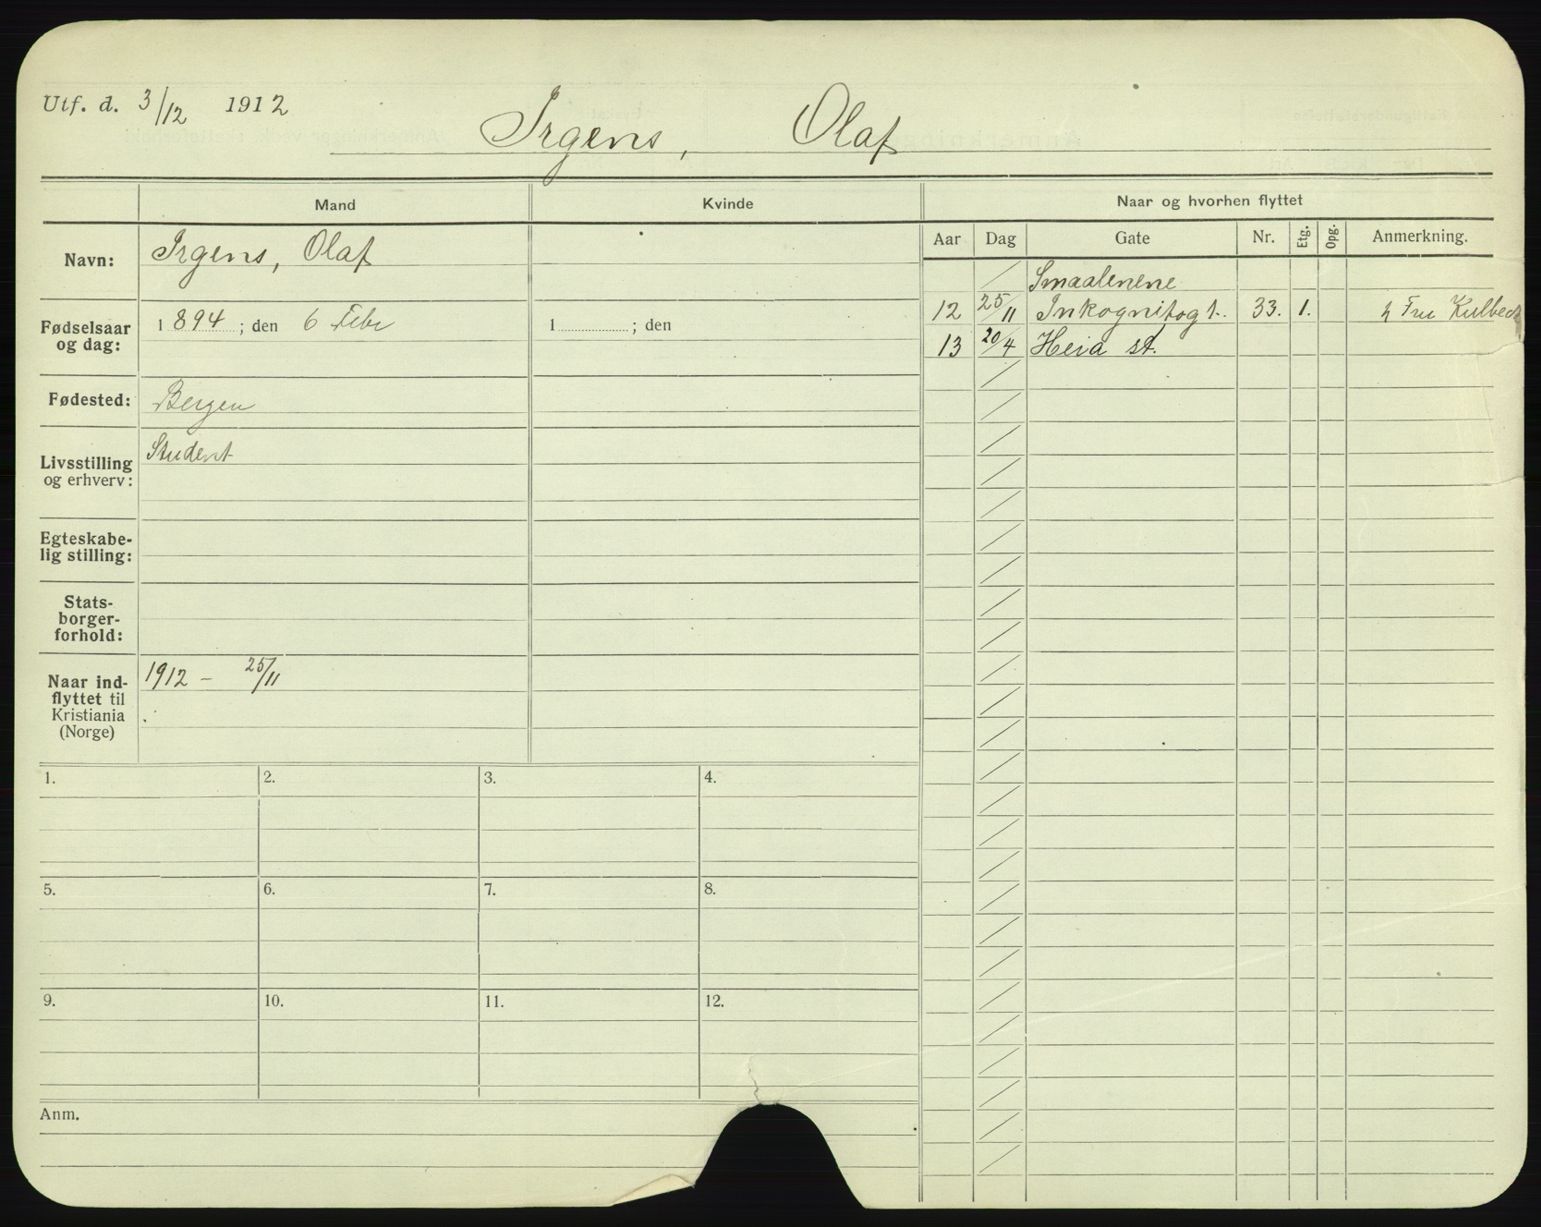 Utf. d. 3/12 1912
Irgens, Olaf
Mand
Kvinde
Naar og hvorhen flyttet
Aar Dag Gate Nr. Etg. Opg. Anmerkning.
Navn: Irgens, Olaf
Fødselsaar og dag: 1894; den 6 Febr
1 ; den
Fødested: Bergen
Livsstilling og erhverv: Student
Egteskabe-
lig stilling:
Stats-
borger-
forhold:
Naar ind-
flyttet til
Kristiania
(Norge)
1912 – 25/11
Smaalenene
12 25/11 Inkognitogt. 33. 1. h Fru Kulbeck
13 20/4 Heia st.
1. 2. 3. 4.
5. 6. 7. 8.
9. 10. 11. 12.
Anm.